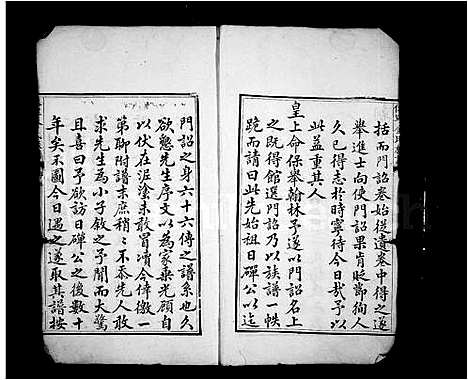 括而門詔卷始從遺卷中得之遂
舉進士向使門詔果肯貶節徇人
久已得志於時寧待今日哉予以
此益重其人
皇上命保舉翰林予遂以門詔名上
之既得館選門詔乃以族譜一帙
跪而請曰此先始祖日磾公以迄
門詔之身六十六傳之譜系也久
欲懇先生序文以為家乘光顧自
以伏在泥塗未敢冒瀆今倖徼一
第聊附譜末庶稍〻不忝先人敢
求先生為小子敘之予聞而大驚
且喜曰予欲訪日磾公之後數十
年矣不圖今日遇之遂取其譜按